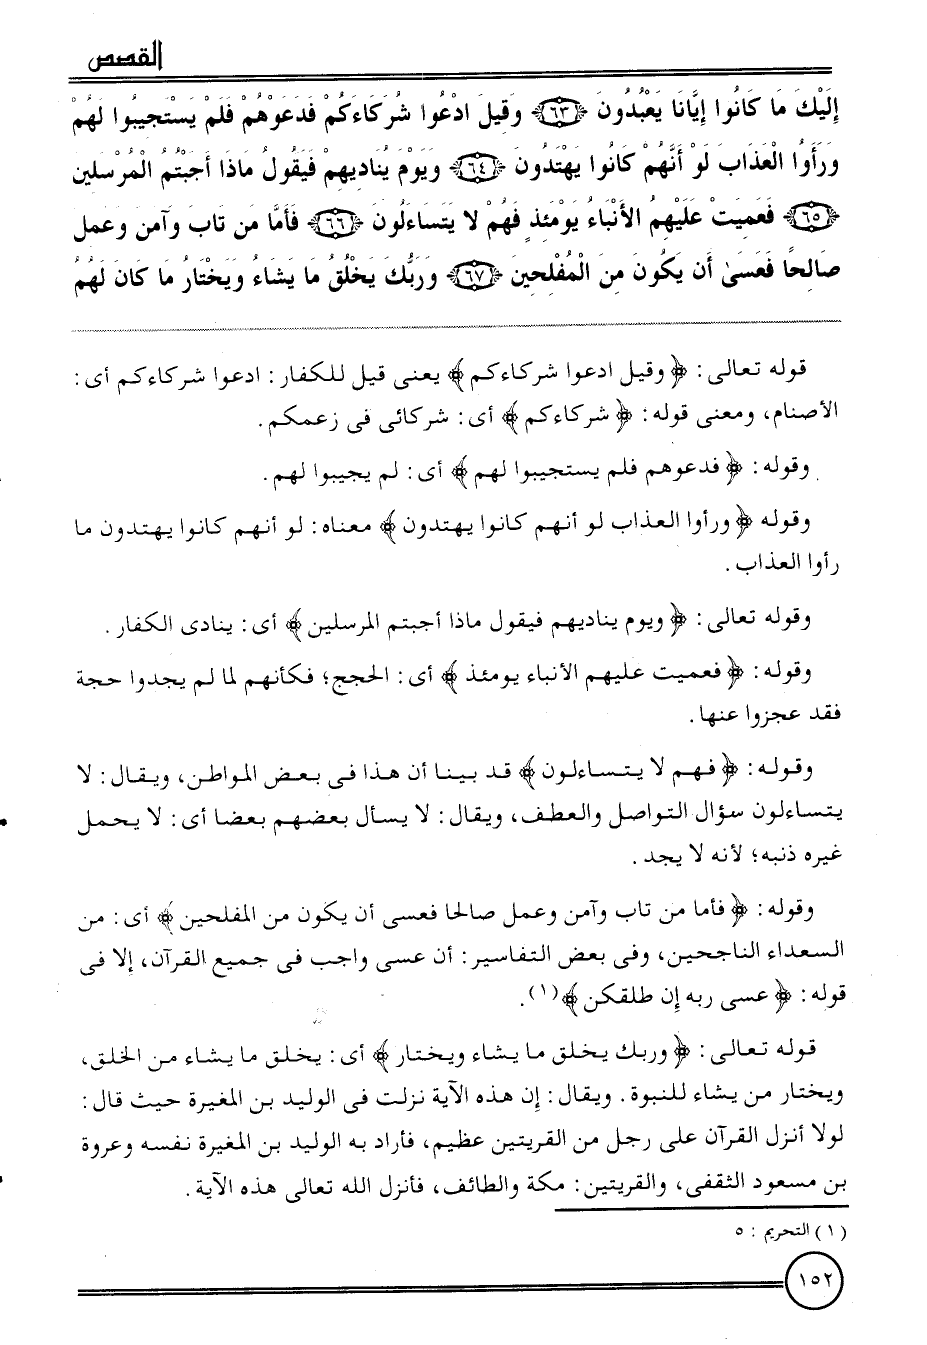 القصص
إِلَيْكَ مَا كَانُوا إِيَّانَا يَعْبُدُونَ ﴿٦٣﴾ وَقِيلَ ادْعُوا شُرَكَاءَكُمْ فَدَعَوْهُمْ فَلَمْ يَسْتَجِيبُوا لَهُمْ
وَرَأَوُا الْعَذَابَ لَوْ أَنَّهُمْ كَانُوا يَهْتَدُونَ ﴿٦٤﴾ وَيَوْمَ يُنَادِيهِمْ فَيَقُولُ مَاذَا أَجَبْتُمُ الْمُرْسَلِينَ
﴿٦٥﴾ فَعَمِيَتْ عَلَيْهِمُ الأَنْبَاءُ يَوْمَئِذٍ فَهُمْ لا يَتَسَاءَلُونَ ﴿٦٦﴾ فَأَمَّا مَن تَابَ وَآمَنَ وَعَمِلَ
صَالِحًا فَعَسَىٰ أَن يَكُونَ مِنَ الْمُفْلِحِينَ ﴿٦٧﴾ وَرَبُّكَ يَخْلُقُ مَا يَشَاءُ وَيَخْتَارُ مَا كَانَ لَهُمُ
قوله تعالى: ﴿ وقيل ادعوا شركاءكم ﴾ يعنى قيل للكفار: ادعوا شركاءكم أى:
الأصنام، ومعنى قوله: ﴿ شركاءكم ﴾ أى: شركائى فى زعمكم.
وقوله: ﴿ فدعوهم فلم يستجيبوا لهم ﴾ أى: لم يجيبوا لهم.
وقوله ﴿ ورأوا العذاب لو أنهم كانوا يهتدون ﴾ معناه: لو أنهم كانوا يهتدون ما
رأوا العذاب.
وقوله تعالى: ﴿ ويوم يناديهم فيقول ماذا أجبتم المرسلين ﴾ أى: ينادى الكفار.
وقوله: ﴿ فعميت عليهم الأنباء يومئذ ﴾ أى: الحجج؛ فكأنهم لما لم يجدوا حجة
فقد عجزوا عنها.
وقوله: ﴿ فهم لا يتساءلون ﴾ قد بينا أن هذا فى بعض المواطن، ويقال: لا
يتساءلون سؤال التواصل والعطف، ويقال: لا يسأل بعضهم بعضا أى: لا يحمل
غيره ذنبه؛ لأنه لا يجد.
وقوله: ﴿ فأما من تاب وآمن وعمل صالحا فعسى أن يكون من المفلحين ﴾ أى: من
السعداء الناجحين، وفى بعض التفاسير: أن عسى واجب فى جميع القرآن، إلا فى
قوله: ﴿ عسى ربه إن طلقكن ﴾(١).
قوله تعالى: ﴿ وربك يخلق ما يشاء ويختار ﴾ أى: يخلق ما يشاء من الخلق،
ويختار من يشاء للنبوة. ويقال: إن هذه الآية نزلت فى الوليد بن المغيرة حيث قال:
لولا أنزل القرآن على رجل من القريتين عظيم، فأراد به الوليد بن المغيرة نفسه وعروة
بن مسعود الثقفى، والقريتين: مكة والطائف، فأنزل الله تعالى هذه الآية.
(١) التحريم: ٥
١٥٢